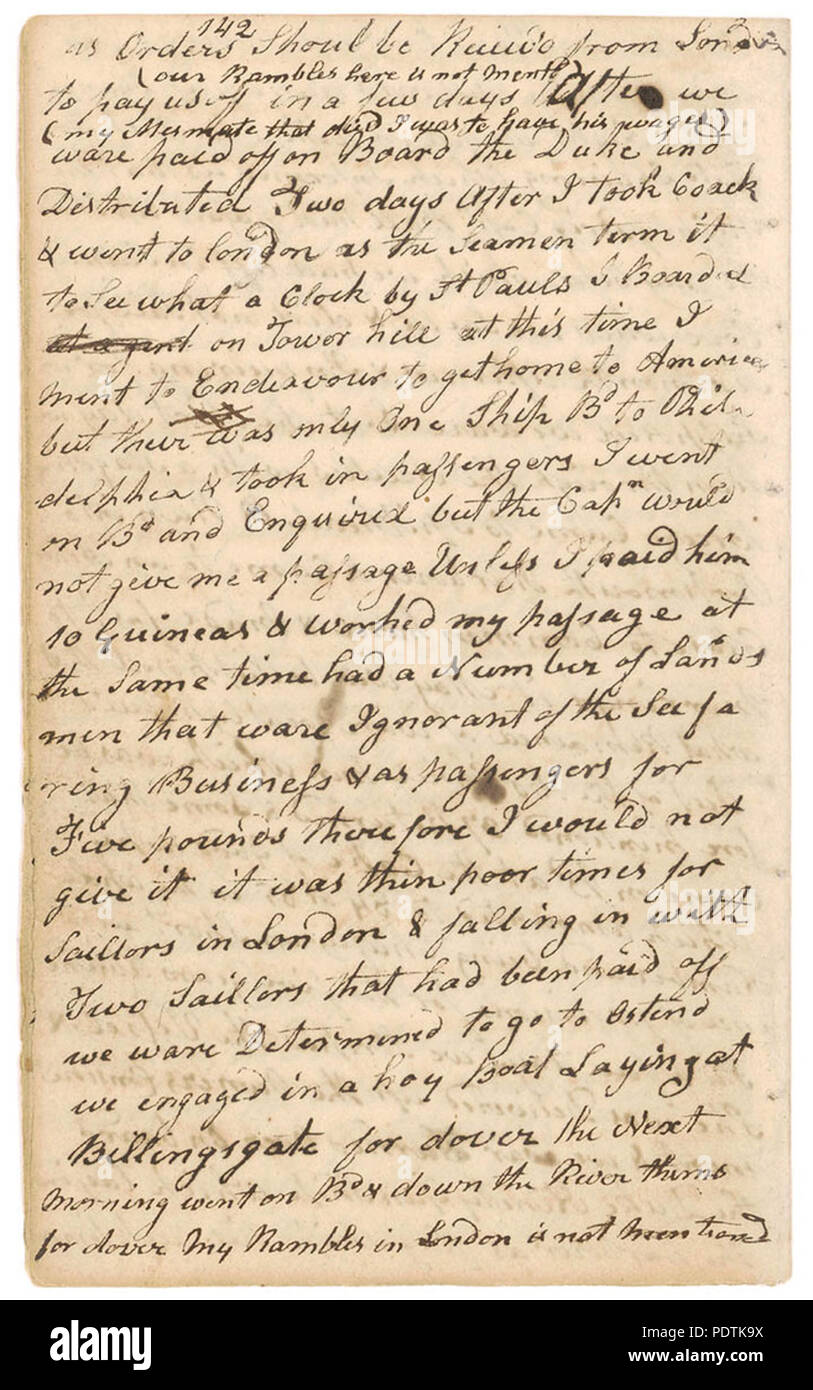 142
as Orders Shoul be Reciev'd from Lond
(our Rambles here is not Ment
to pay us off in a few days After we
(my Mesmate that died I was to have his wages)
ware paid off on Board the Duke and
Distributed Two days After I took Coach
& went to london as the Seamen term it
to See what a Clock by St Pauls I Boarded
on Towor hill at this time I
ment to Endeavour to get home to America
but their was only One Ship Bd to Phila
delphia & took in passengers I went
on Bd and Enquired but the Capn would
not give me a passage Unless I paid him
10 Guineas & worked my passage at
the Same time had a Number of Lands
men that ware Ignorant of the See fa
ring Business & as passengers for
Five pounds therefore I would not
give it it was thin poor times for
Saillors in London & falling in with
Two Saillors that had been paid off
we ware Determined to go to Ostend
we engaged in a hoy Boat Laying at
Billingsgate for dover the Next
Morning went on Bd & down the River thems
for dover My Rambles in London is not mentioned
alamy
Image ID: PDTK9X
www.alamy.com